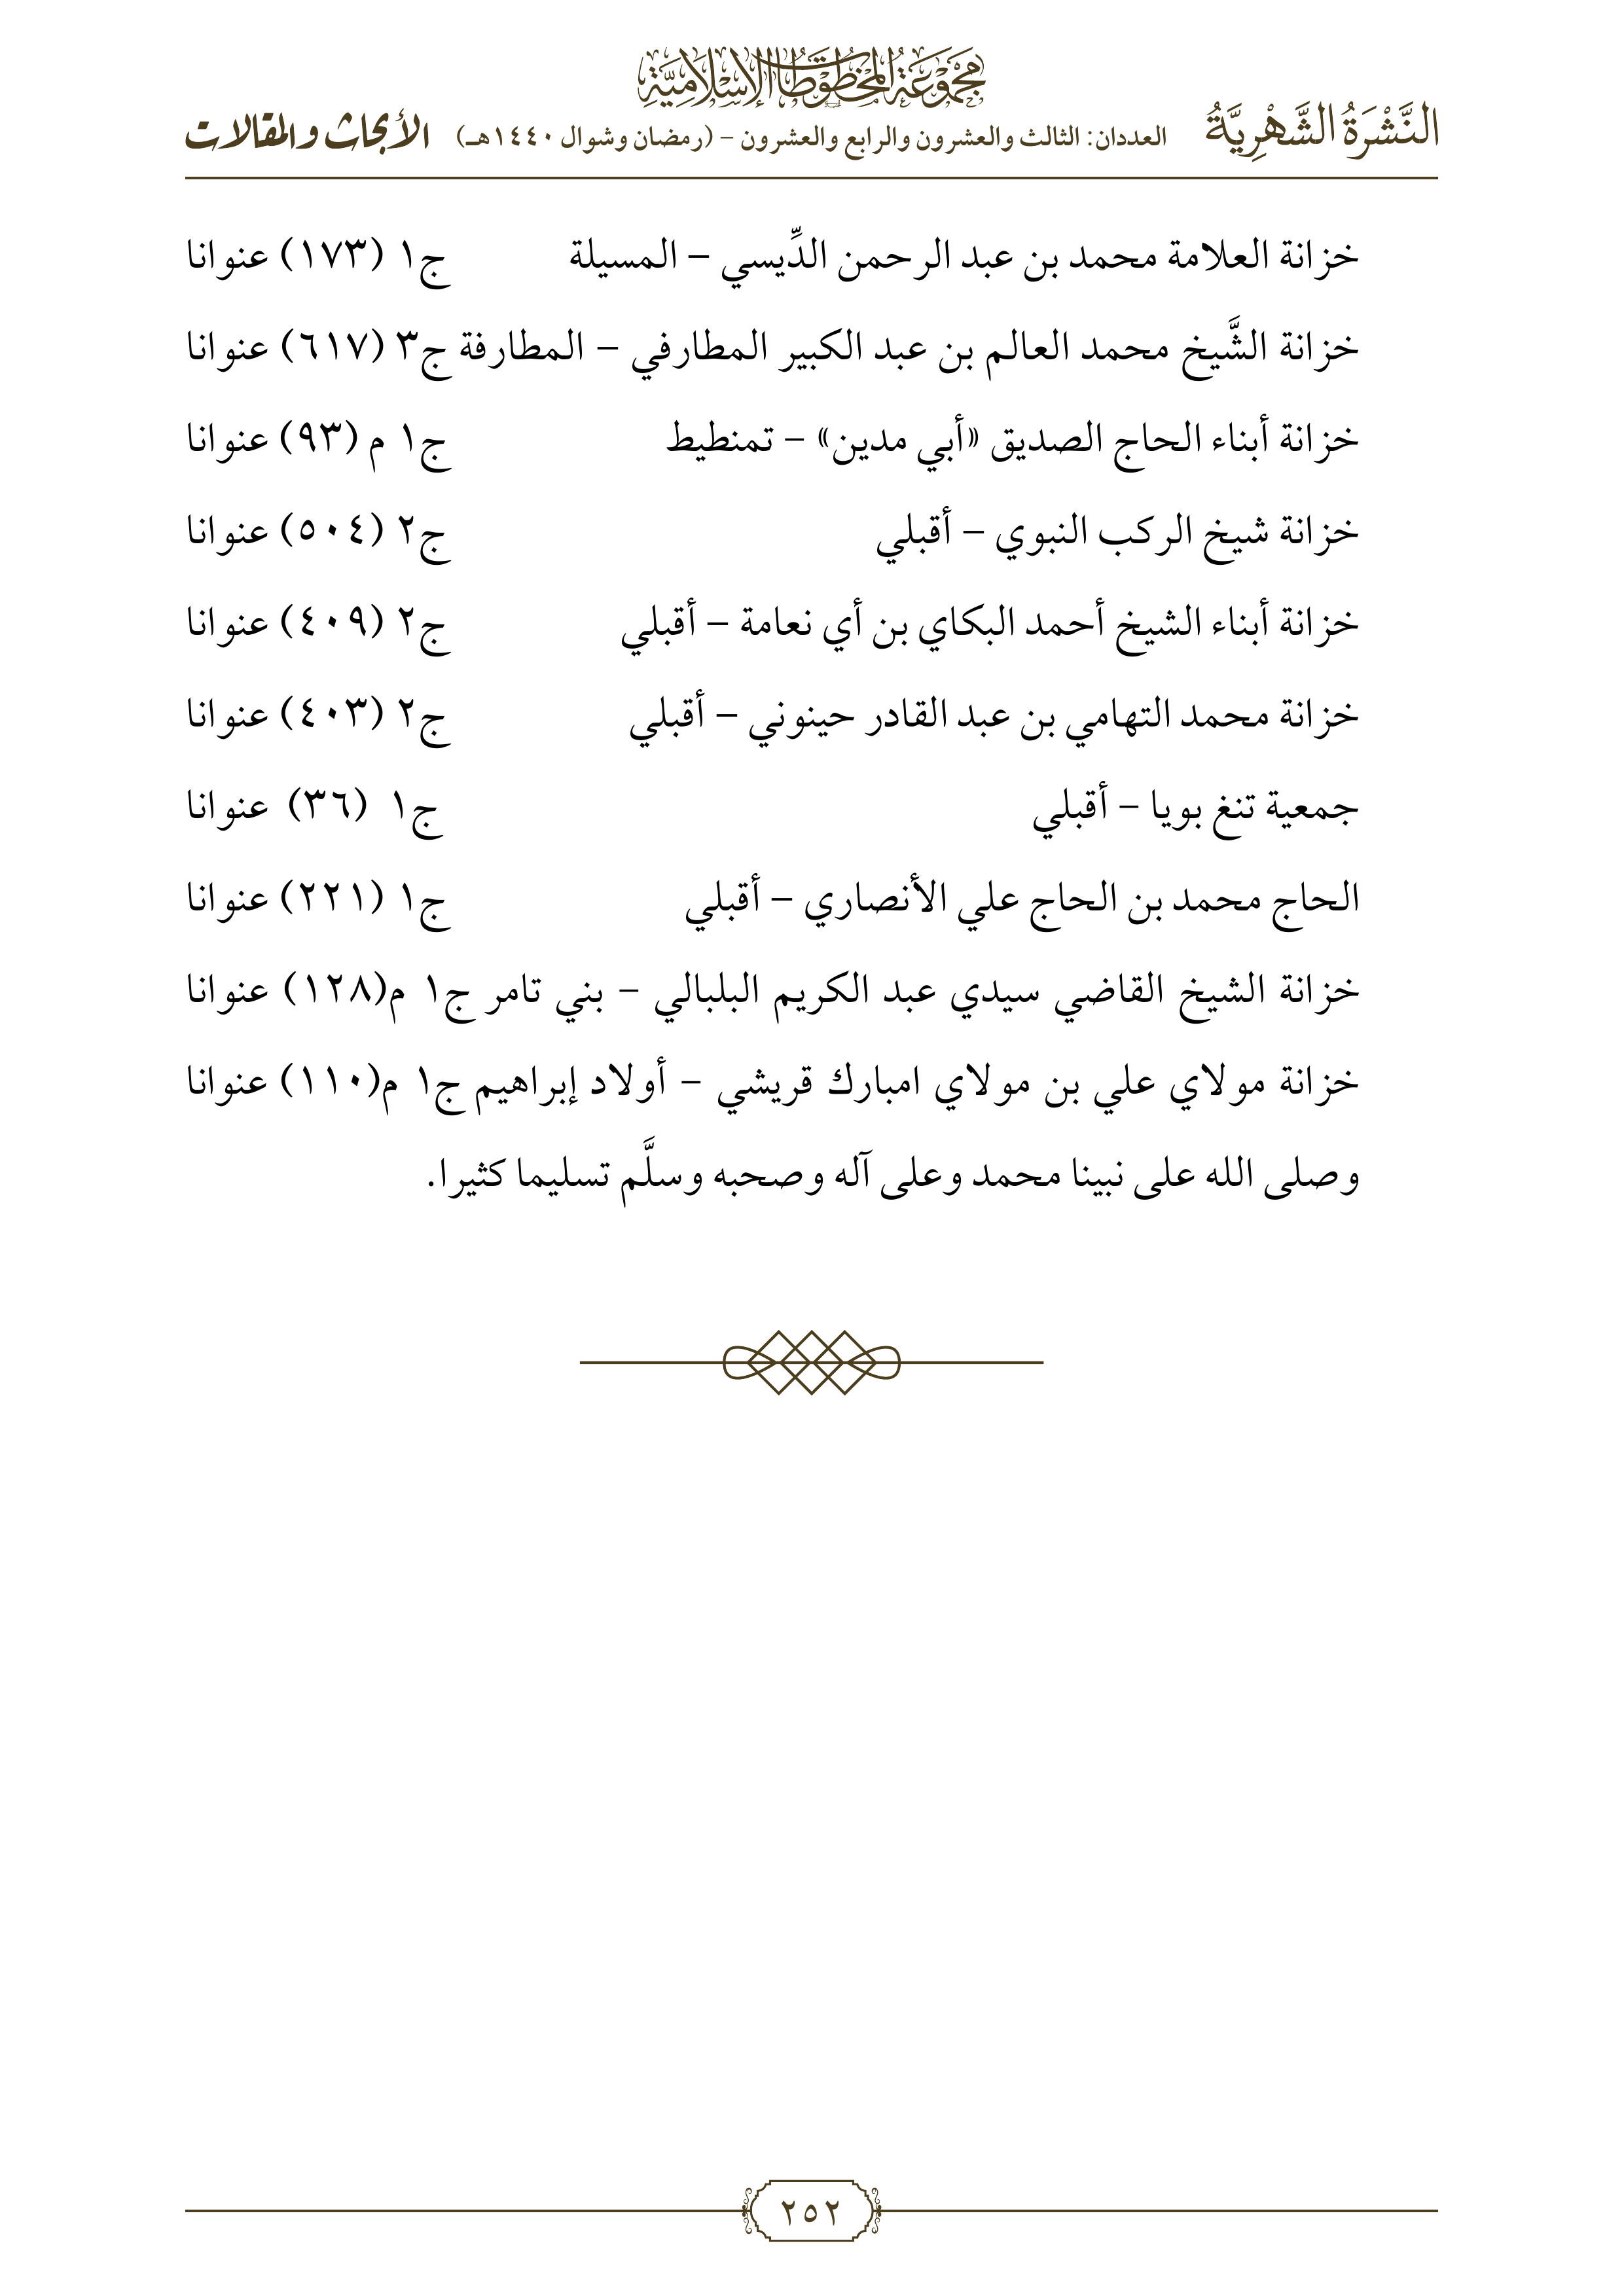 مجموعة المخطوطات الإسلامية
النَّشْرَةُ الشَّهْرِيَّةُ العددان: الثالث والعشرون والرابع والعشرون – (رمضان وشوال ١٤٤٠هـ) الأبحاث والمقالات
خزانة العلامة محمد بن عبد الرحمن الدِّيسي – المسيلة ج١ (١٧٣) عنوانا
خزانة الشَّيخ محمد العالم بن عبد الكبير المطارفي – المطارفة ج٣ (٦١٧) عنوانا
خزانة أبناء الحاج الصديق «أبي مدين» – تمنطيط ج١ م (٩٣) عنوانا
خزانة شيخ الركب النبوي – أقبلي ج٢ (٥٠٤) عنوانا
خزانة أبناء الشيخ أحمد البكاي بن أي نعامة – أقبلي ج٢ (٤٠٩) عنوانا
خزانة محمد التهامي بن عبد القادر حينوني – أقبلي ج٢ (٤٠٣) عنوانا
جمعية تنغ بويا – أقبلي ج١ (٣٦) عنوانا
الحاج محمد بن الحاج علي الأنصاري – أقبلي ج١ (٢٢١) عنوانا
خزانة الشيخ القاضي سيدي عبد الكريم البلبالي – بني تامر ج١ م(١٢٨) عنوانا
خزانة مولاي علي بن مولاي امبارك قريشي – أولاد إبراهيم ج١ م(١١٠) عنوانا
وصلى الله على نبينا محمد وعلى آله وصحبه وسلَّم تسليما كثيرا.
٢٥٢